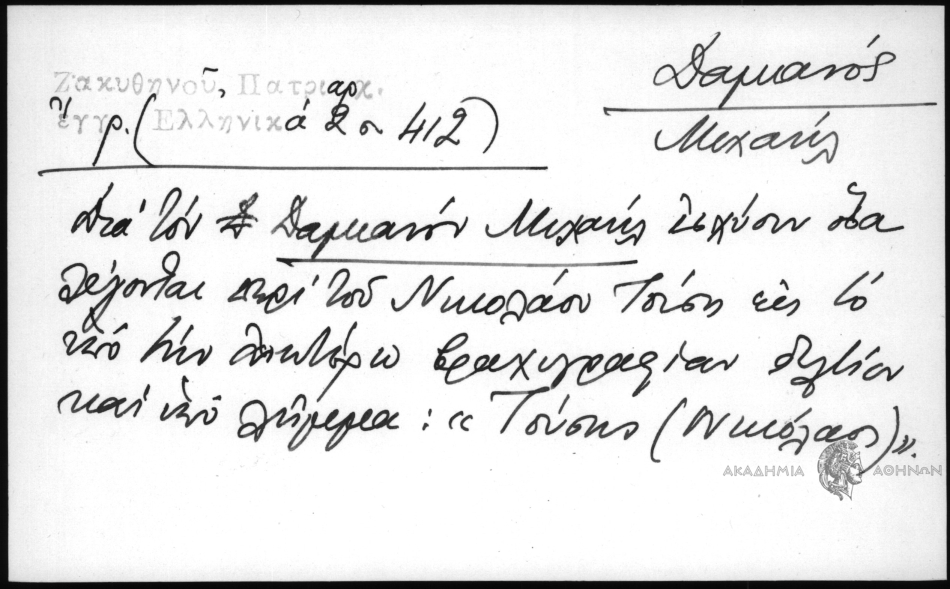 Ζακυθηνοῦ, Πατριαρχ.
ἔγγρ. (Ἑλληνικά 2 σ 412)
Δαμιανός
Μιχαήλ
Διά τόν Δαμιανόν Μιχαήλ ἰσχύουν ὅσα
λέγονται περί τοῦ Νικολάου Τσίση εἰς τό
ὑπό τήν ἀνωτέρω βραχυγραφίαν δελτίον
καί ὑπό λῆμμα: «Τσίσης (Νικόλαος)».
ΑΚΑΔΗΜΙΑ ΑΘΗΝΩΝ